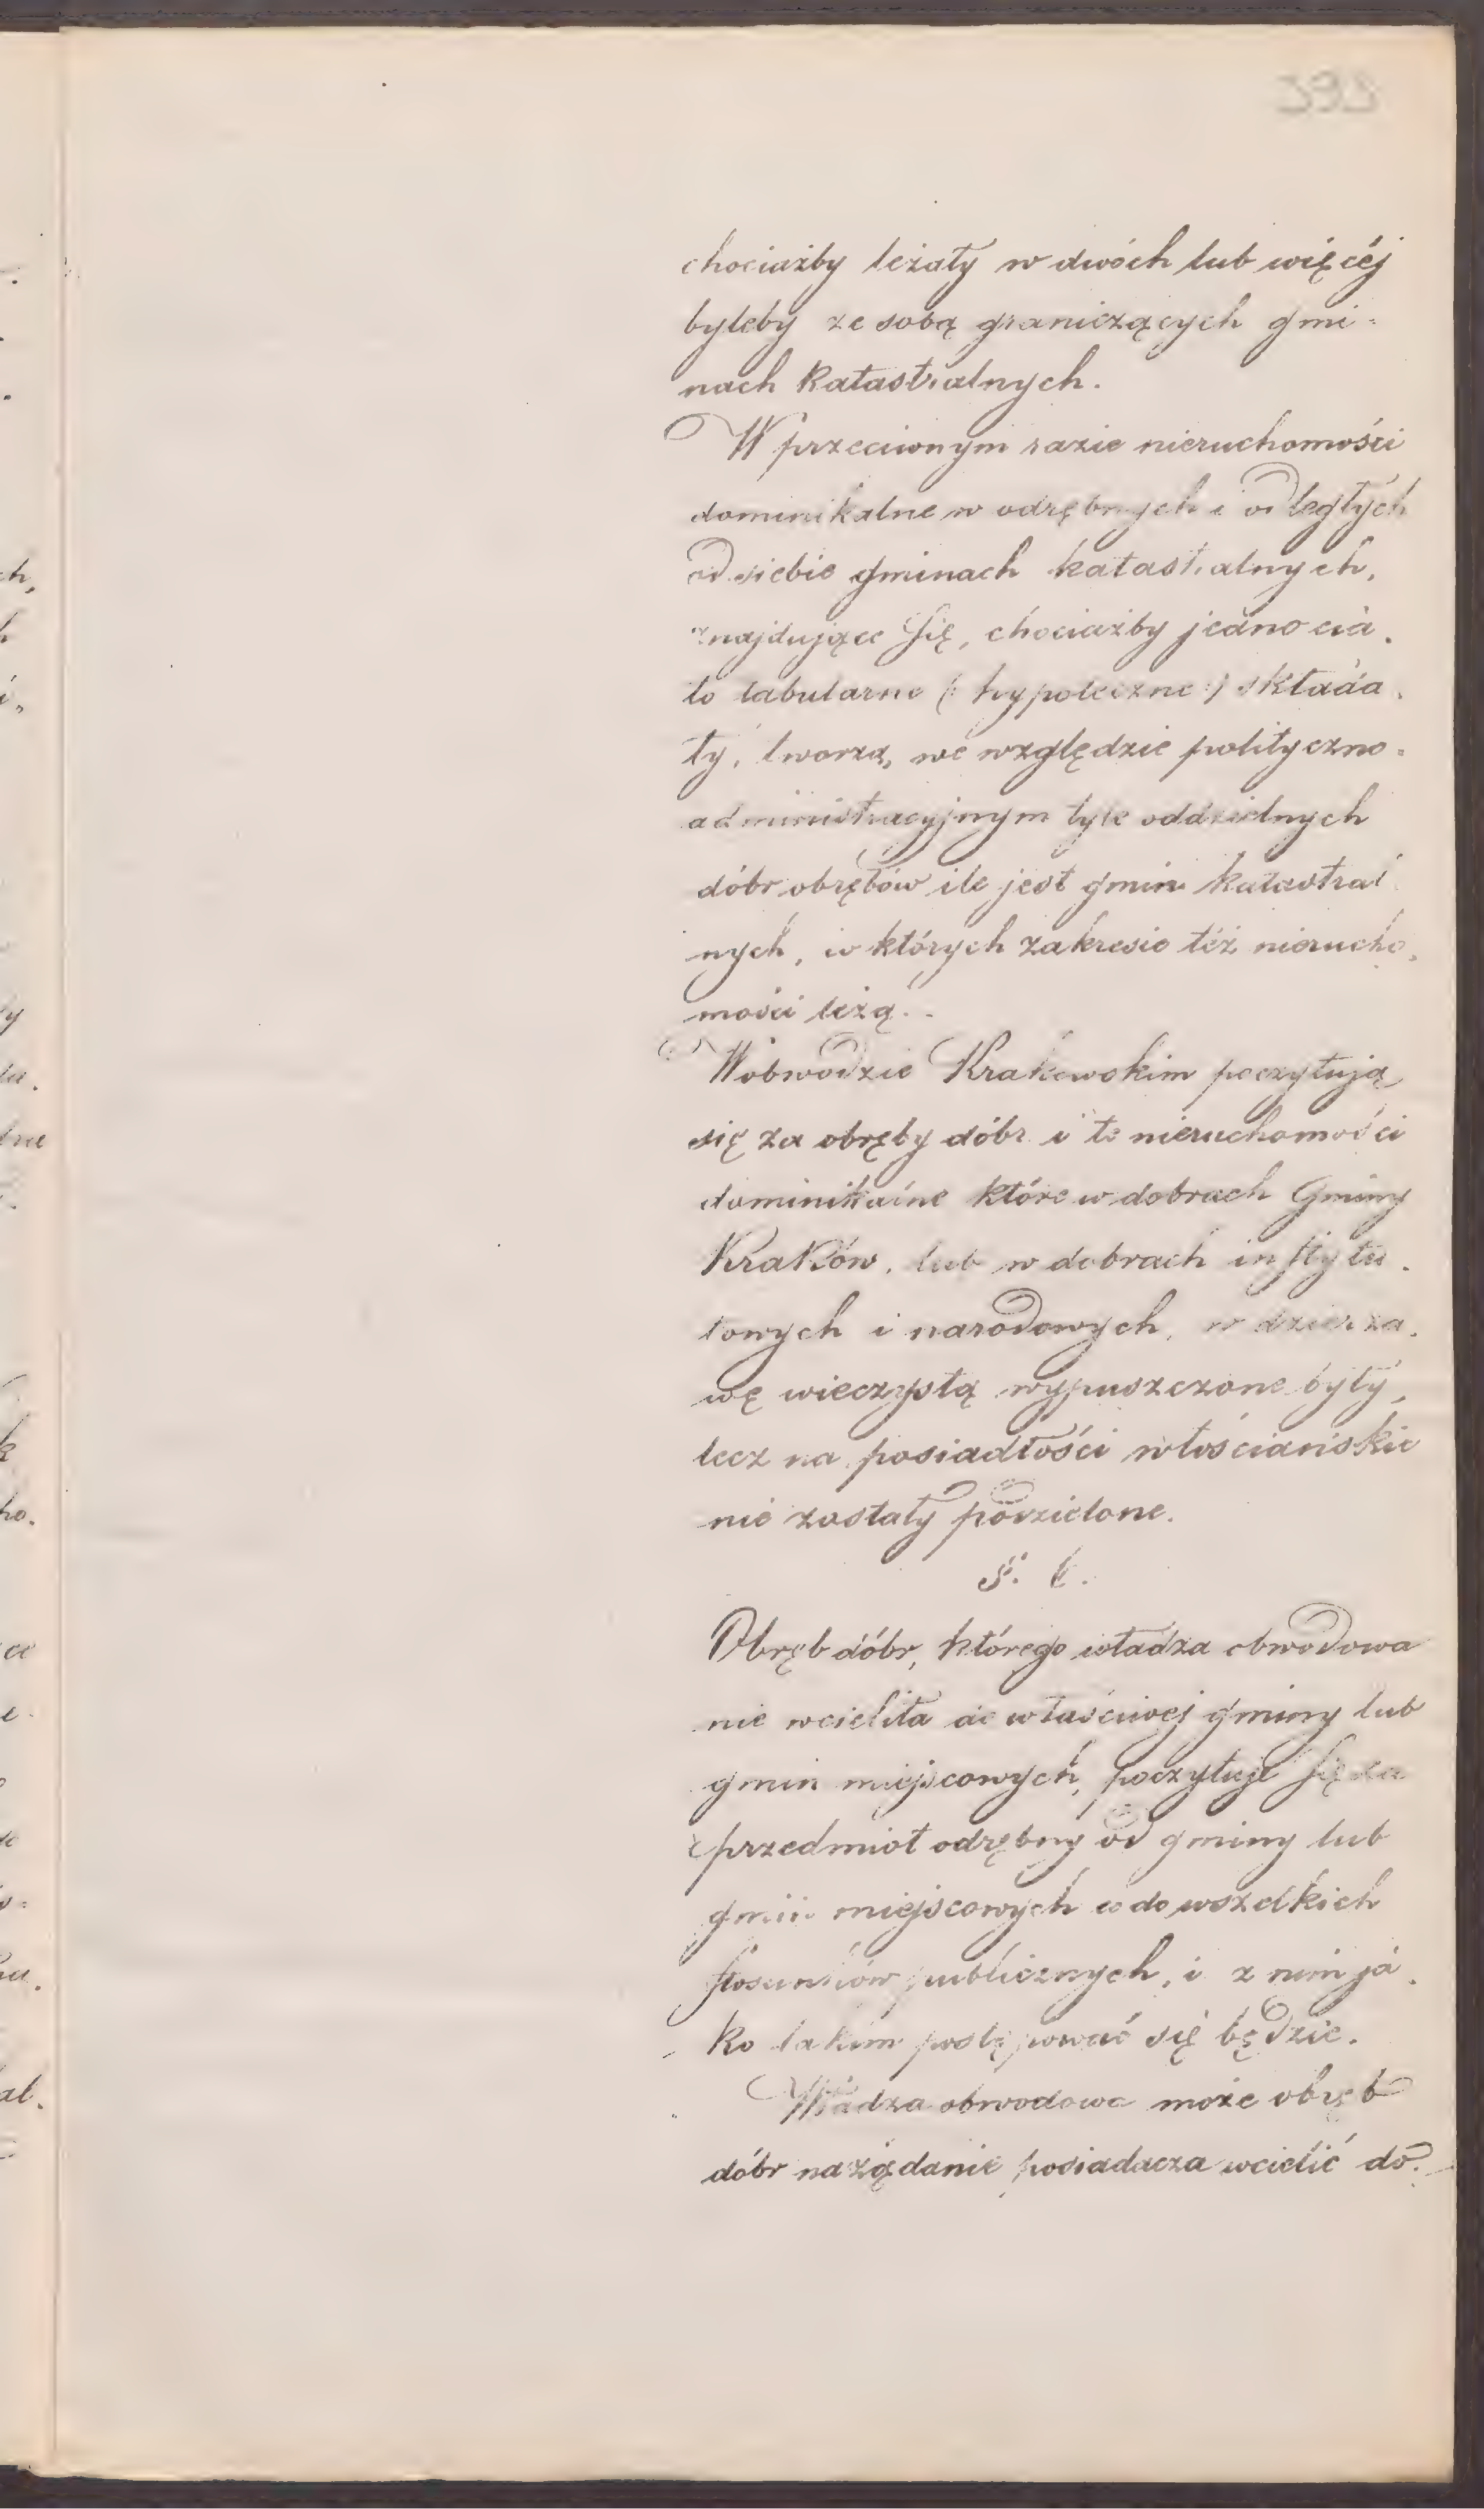 393
chociażby leżały w dwóch lub więcéj
byleby ze sobą graniczących gmi-
nach katastralnych.
W przeciwnym razie nieruchomości
dominikalne w odrębnych i odległych
od siebie gminach katastralnych,
znajdujące się, chociażby jedno cia-
ło tabularne (: hypoteczne :) składa-
ły, tworzą, we względzie polityczno-
administracyjnym tyle oddzielnych
dóbr obrębów ile jest gmin katastral
nych, w których zakresie też nierucho-
mości leżą.
W obwodzie Krakowskim poczytują
się za obręby dóbr i te nieruchomości
dominikalne które w dobrach Gminy
Kraków, lub w dobrach instytu-
towych i narodowych, w dzierża-
wę wieczystą wypuszczone były,
lecz na posiadłości włościańskie
nie zostały podzielone.
§.
Obręb dóbr, którego władza obwodowa
nie wcieliła do właściwej gminy lub
gmin miejscowych, poczytuje się za
przedmiot odrębny od gminy lub
gmin miejscowych co do wszelkich
stosunków publicznych, i z nim ja-
ko takim postępować się będzie.
Władza obwodowa może obręb
dóbr na żądanie posiadacza wcielić do